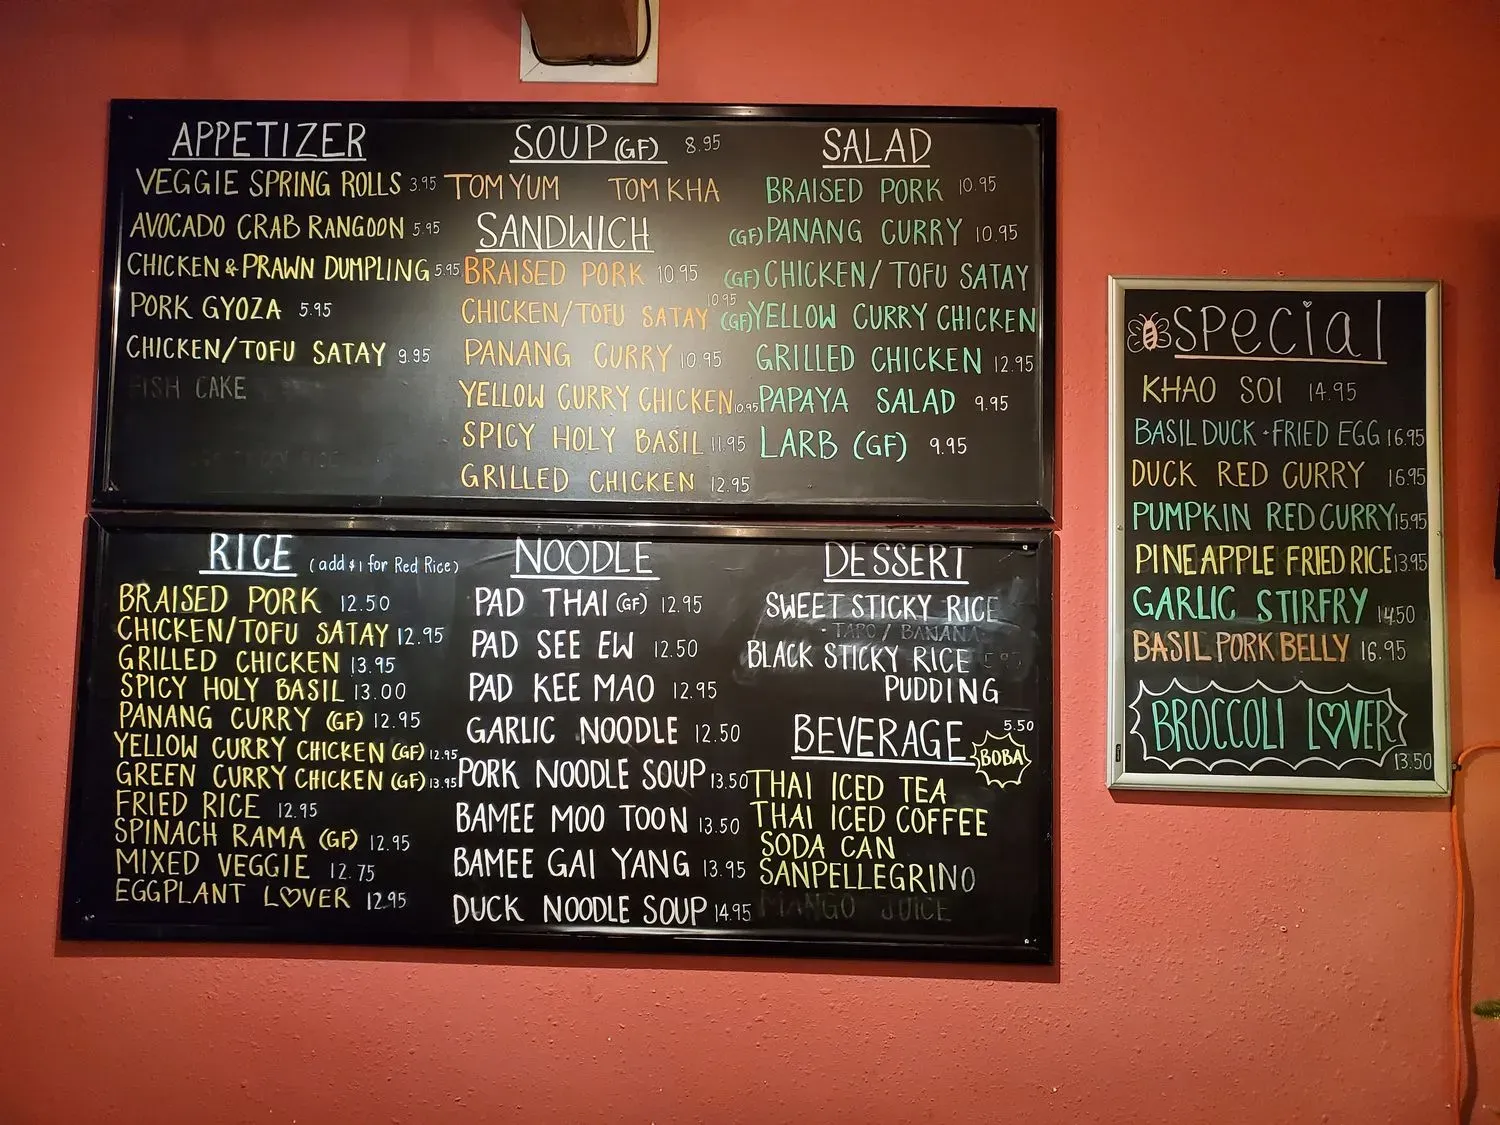 APPETIZER
VEGGIE SPRING ROLLS 3.95
AVOCADO CRAB RANGOON 5.95
CHICKEN & PRAWN DUMPLING 5.95
PORK GYOZA 5.95
CHICKEN/TOFU SATAY 9.95
FISH CAKE
SOUP (GF) 8.95
TOM YUM TOM KHA
SANDWICH
BRAISED PORK 10.95
CHICKEN/TOFU SATAY 10.95
PANANG CURRY 10.95
YELLOW CURRY CHICKEN 10.95
SPICY HOLY BASIL 11.95
GRILLED CHICKEN 12.95
SALAD
BRAISED PORK 10.95
(GF) PANANG CURRY 10.95
(GF) CHICKEN/TOFU SATAY
(GF) YELLOW CURRY CHICKEN
GRILLED CHICKEN 12.95
PAPAYA SALAD 9.95
LARB (GF) 9.95
RICE (add $1 for Red Rice)
BRAISED PORK 12.50
CHICKEN/TOFU SATAY 12.95
GRILLED CHICKEN 13.95
SPICY HOLY BASIL 13.00
PANANG CURRY (GF) 12.95
YELLOW CURRY CHICKEN (GF) 12.95
GREEN CURRY CHICKEN (GF) 13.95
FRIED RICE 12.95
SPINACH RAMA (GF) 12.95
MIXED VEGGIE 12.75
EGGPLANT LOVER 12.95
NOODLE
PAD THAI (GF) 12.95
PAD SEE EW 12.50
PAD KEE MAO 12.95
GARLIC NOODLE 12.50
PORK NOODLE SOUP 13.50
BAMEE MOO TOON 13.50
BAMEE GAI YANG 13.95
DUCK NOODLE SOUP 14.95
DESSERT
SWEET STICKY RICE
- TARO / BANANA
BLACK STICKY RICE 5.95
PUDDING
BEVERAGE 5.50
BOBA
THAI ICED TEA
THAI ICED COFFEE
SODA CAN
SANPELLEGRINO
MANGO JUICE
SPECIAL
KHAO SOI 14.95
BASIL DUCK + FRIED EGG 16.95
DUCK RED CURRY 16.95
PUMPKIN RED CURRY 15.95
PINEAPPLE FRIED RICE 13.95
GARLIC STIRFRY 14.50
BASIL PORK BELLY 16.95
BROCCOLI LOVER
13.50